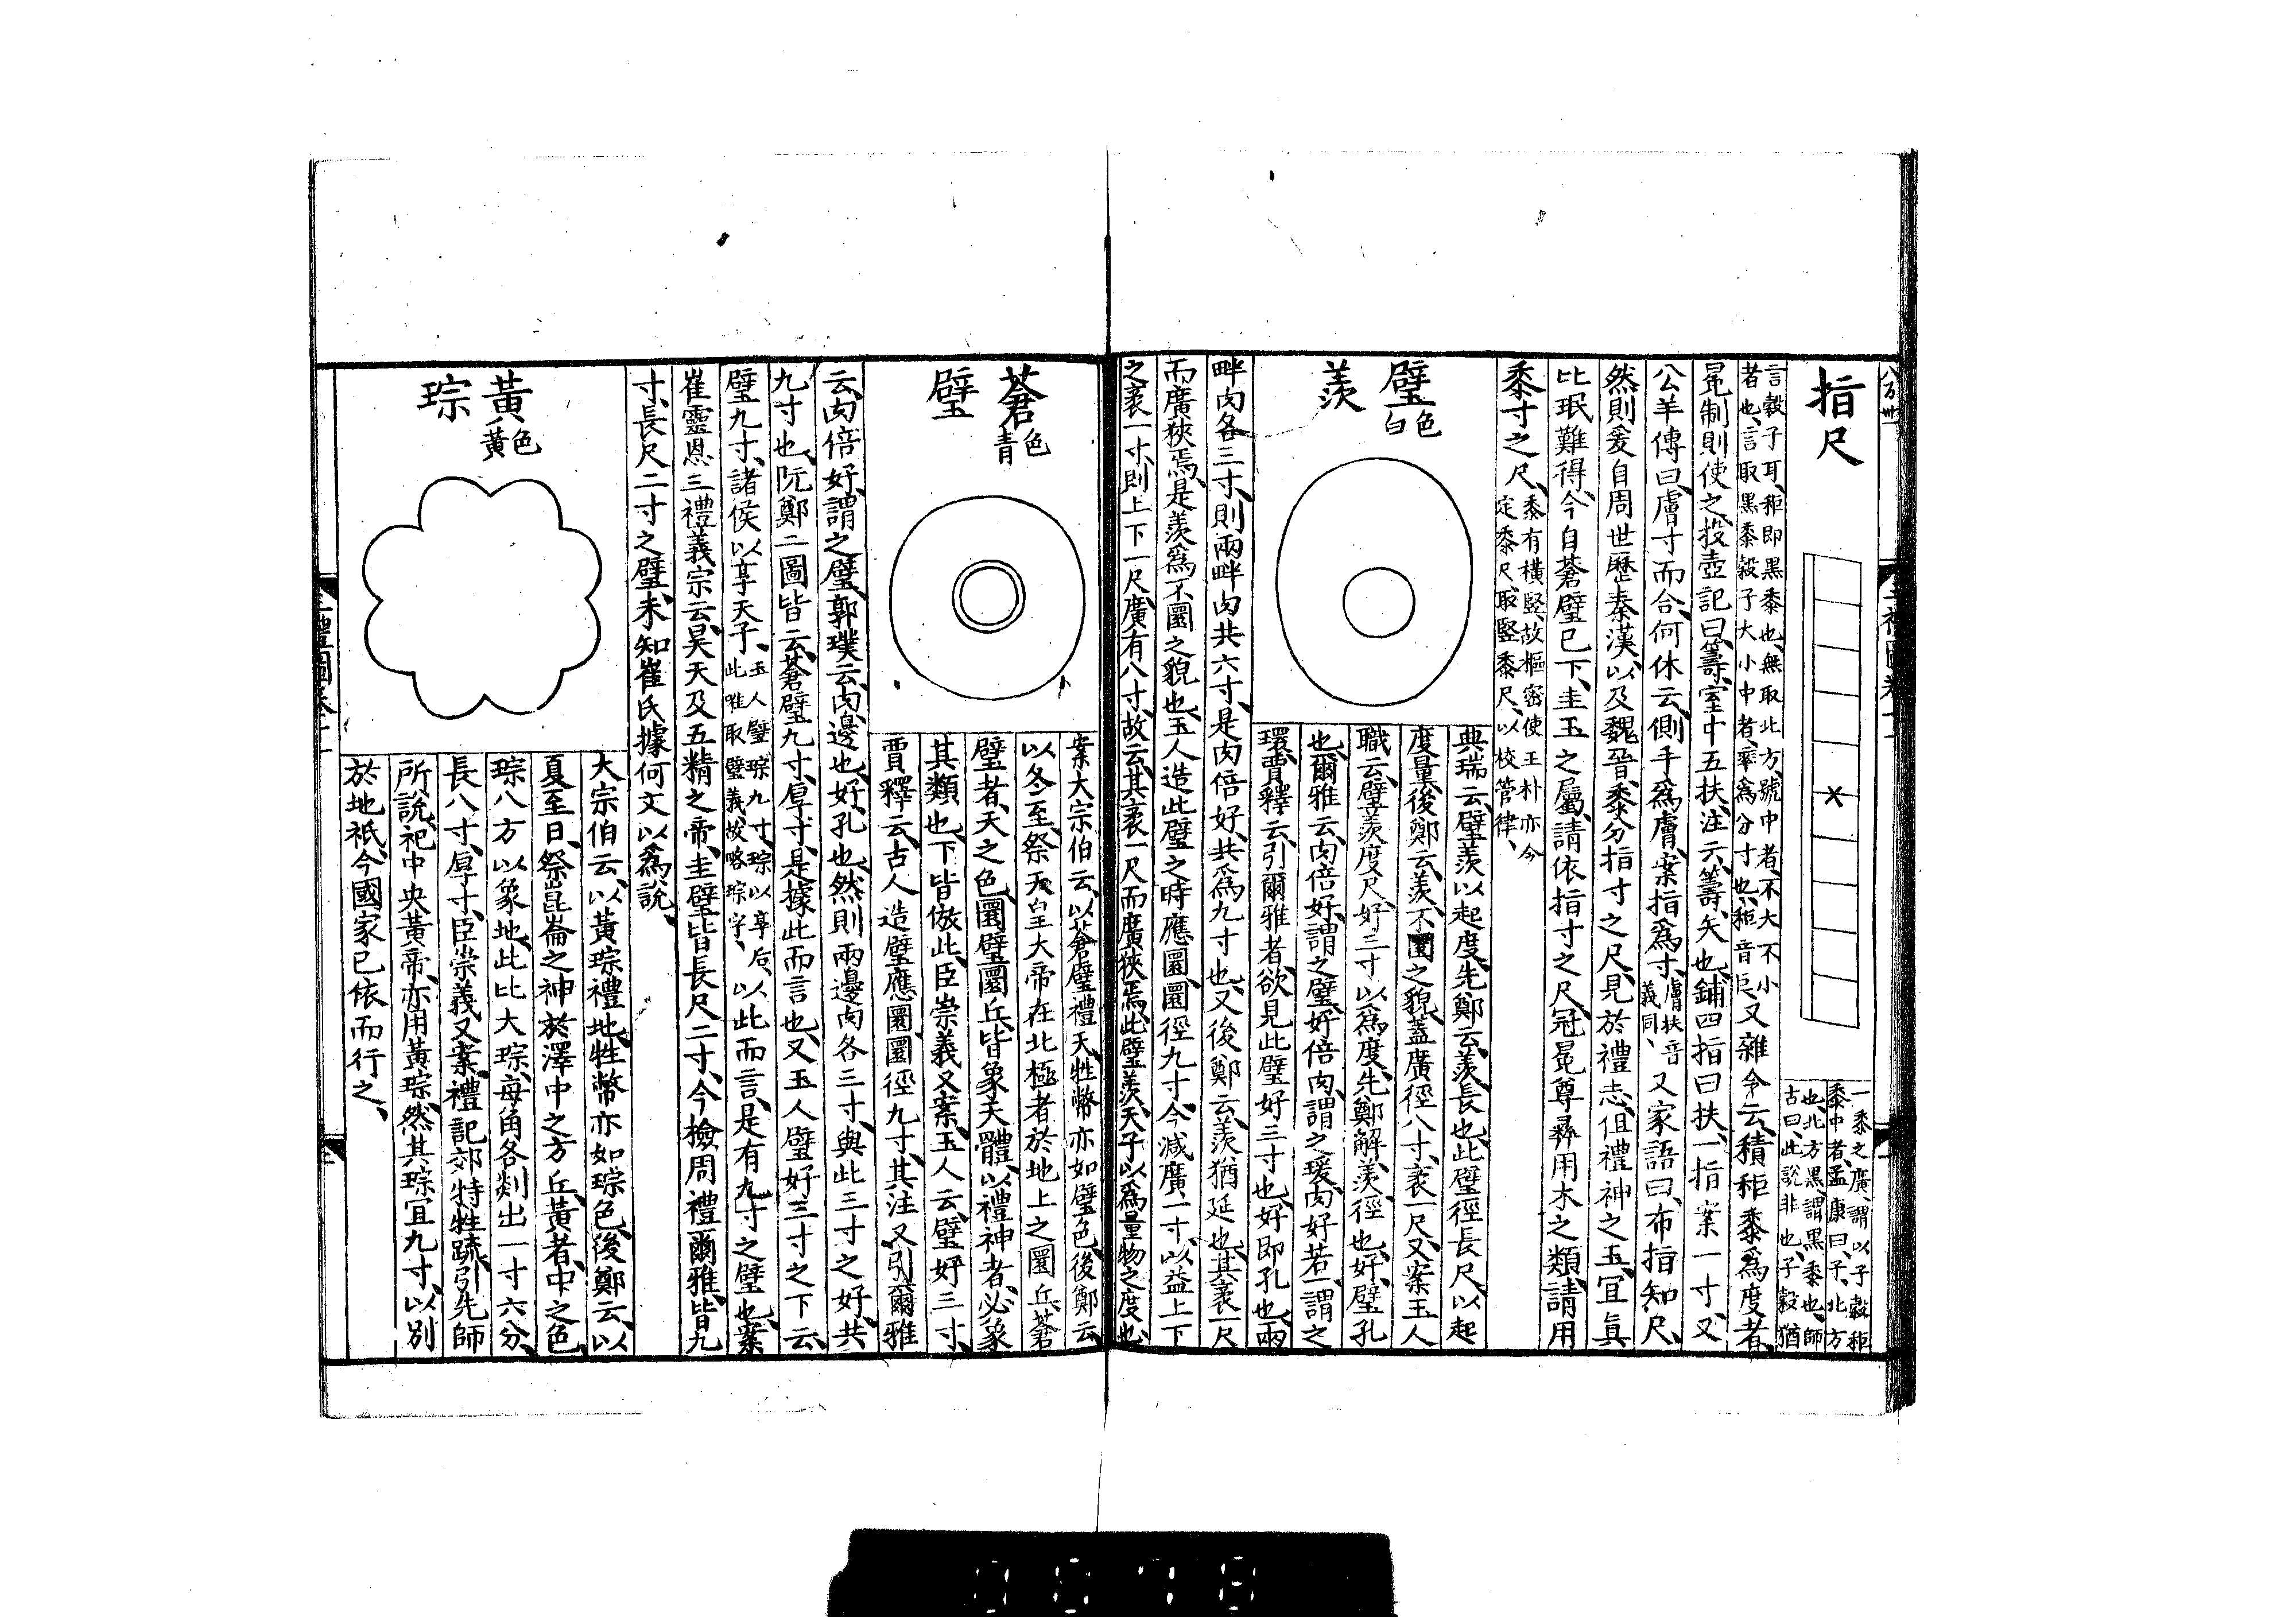 指尺
一黍之廣謂以子穀秬
黍中者孟康曰子北方
也北方黑謂黑黍也師
古曰此說非也子穀猶
言穀子耳秬即黑黍也無取北方號中者不大不小
者也言取黑黍穀子大小中者率為分寸也秬音巨又雜令云積秬黍為度者
冕制則使之投壺記曰籌室中五扶注云籌矢也鋪四指曰扶一指案一寸又
公羊傳曰膚寸而合何休云側手為膚案指為寸膚扶音義同又家語曰布指知尺
然則爰自周世歷秦漢以及魏晉黍分指寸之尺見於禮志俎禮神之玉宜真
比珉難得今自蒼璧已下圭玉之屬請依指寸之尺冠冕尊彞用木之類請用
黍寸之尺黍有橫豎故樞密使王朴亦今
定黍尺取豎黍尺以校管律
璧羨白色
典瑞云璧羨以起度先鄭云羨長也此璧徑長尺以起
度量後鄭云羨不圜之貌蓋廣徑八寸袤一尺又案玉人
職云璧羨度尺好三寸以為度先鄭解羨徑也好璧孔
也爾雅云肉倍好謂之璧好倍肉謂之瑗肉好若一謂之
環賈釋云引爾雅者欲見此璧好三寸也好即孔也兩
畔肉各三寸則兩畔肉共六寸是肉倍好共為九寸也又後鄭云羨猶延也其袤一尺
而廣狹焉是羨為不圜之貌也玉人造此璧之時應圜圜徑九寸今減廣一寸以益上下
之袤一寸則上下一尺廣有八寸故云其袤一尺而廣狹焉此璧羨天子以為量物之度也
蒼璧青色
案大宗伯云以蒼璧禮天牲幣亦如璧色後鄭云
以冬至祭天皇大帝在北極者於地上之圜丘蒼
璧者天之色圜璧圜丘皆象天體以禮神者必象
其類也下皆倣此臣崇義又案玉人云璧好三寸
賈釋云古人造璧應圜圜徑九寸其注又引爾雅
云肉倍好謂之璧郭璞云肉邊也好孔也然則兩邊肉各三寸與此三寸之好共
九寸也阮鄭二圖皆云蒼璧九寸厚寸是據此而言也又玉人璧好三寸之下云
璧九寸諸侯以享天子玉人璧琮九寸琮以享后
此唯取璧義故略琮字以此而言是有九寸之璧也案
崔靈恩三禮義宗云昊天及五精之帝圭璧皆長尺二寸今撿周禮爾雅皆九
寸長尺二寸之璧未知崔氏據何文以為說
黃琮黃色
大宗伯云以黃琮禮地牲幣亦如琮色後鄭云以
夏至日祭崑崙之神於澤中之方丘黃者中之色
琮八方以象地此比大琮每角各剡出一寸六分
長八寸厚寸臣崇義又案禮記郊特牲疏引先師
所說祀中央黃帝亦用黃琮然其琮宜九寸以別
於地祇今國家已依而行之